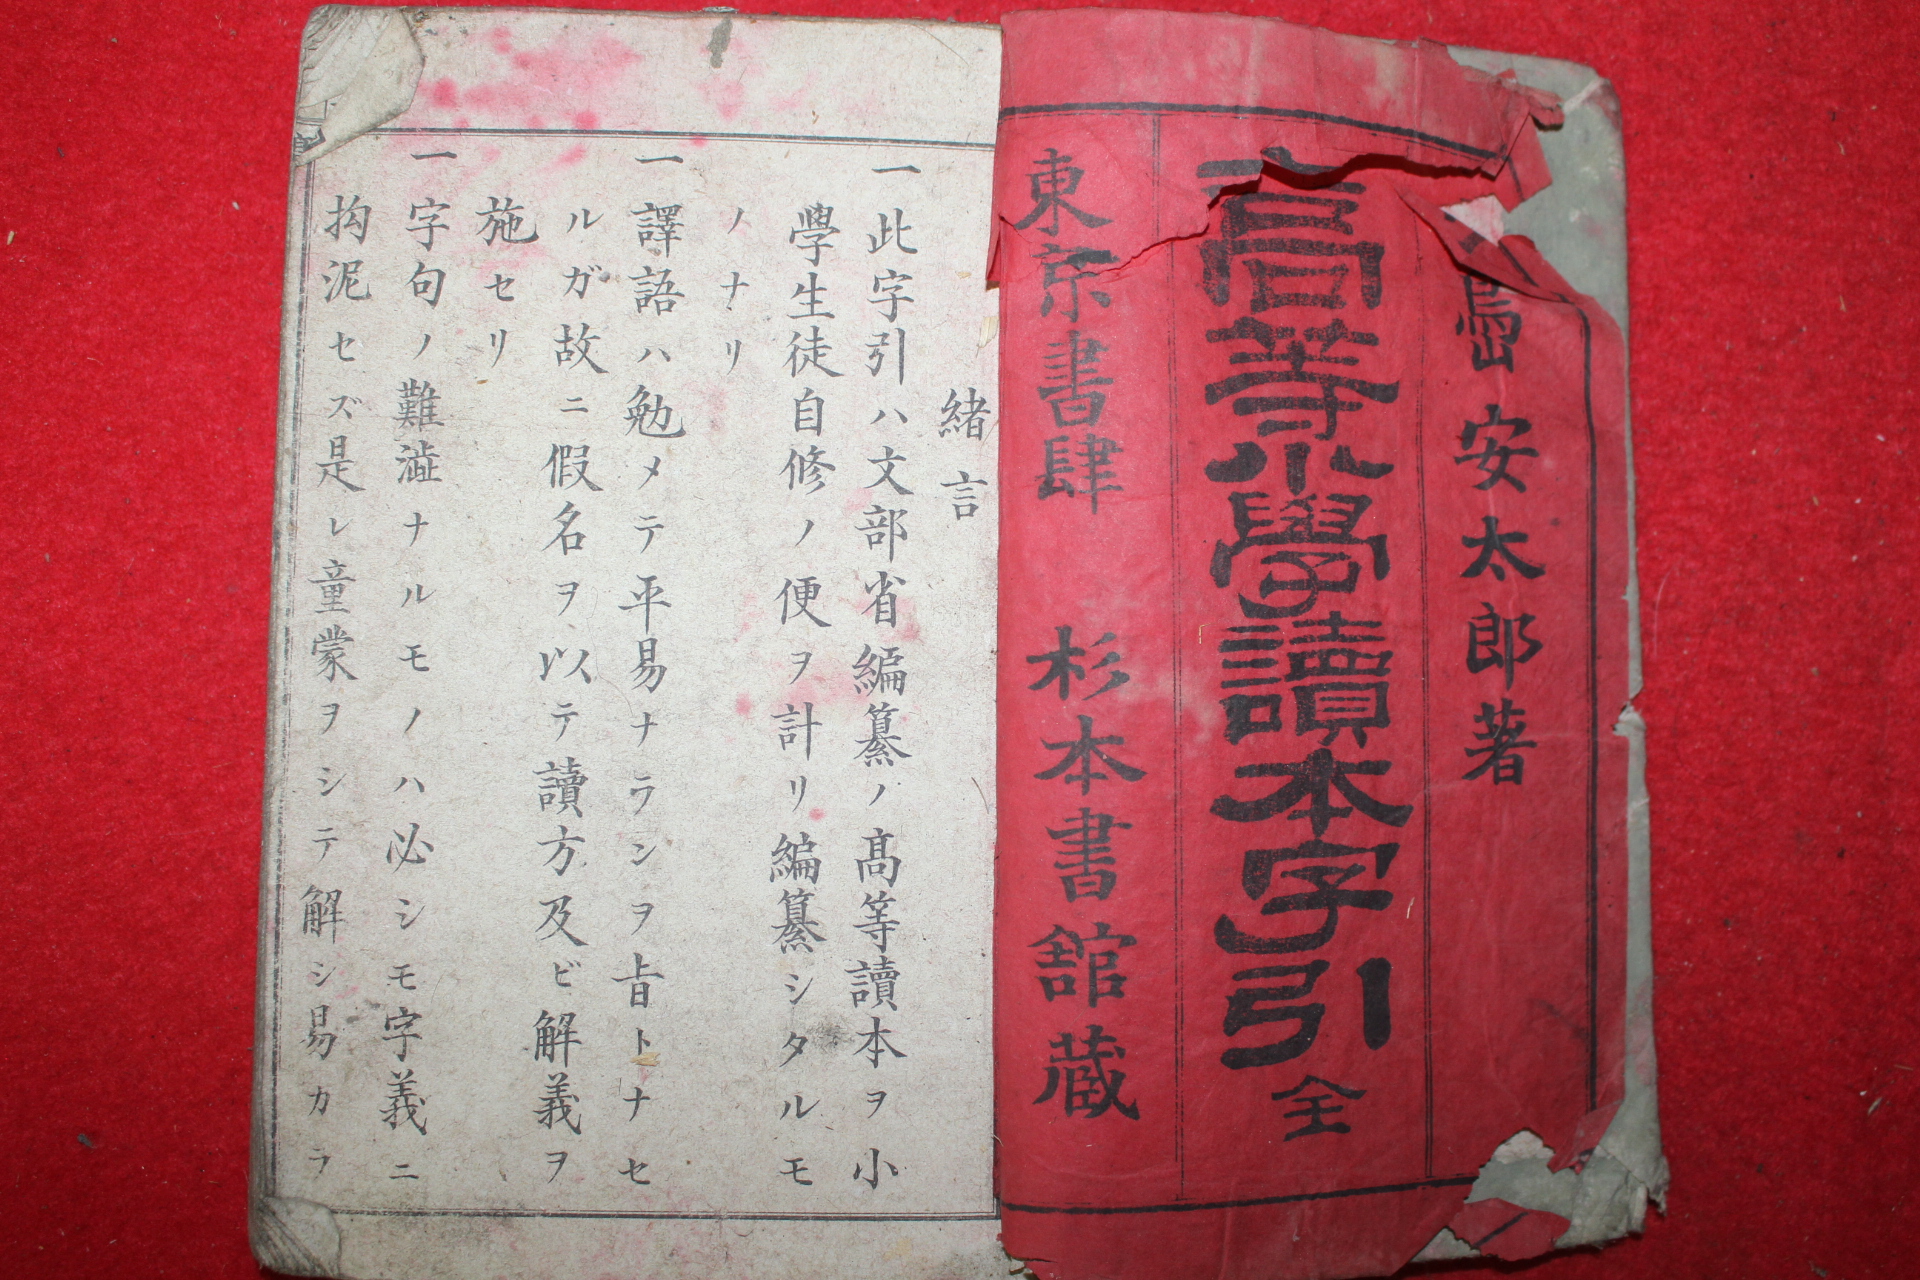 嶌安太郎著
高等小學讀本字引全
東京書肆 杉本書舘蔵
緒言
一此字引ハ文部省編纂ノ髙等讀本ヲ小
學生徒自修ノ便ヲ計リ編纂シタルモ
ノナリ
一譯語ハ勉メテ平易ナランヲ旨トナセ
ルガ故ニ假名ヲ以テ讀方及ビ解義ヲ
施セリ
一字句ノ難澁ナルモノハ必シモ字義ニ
拘泥セズ是レ童蒙ヲシテ解シ易カラ